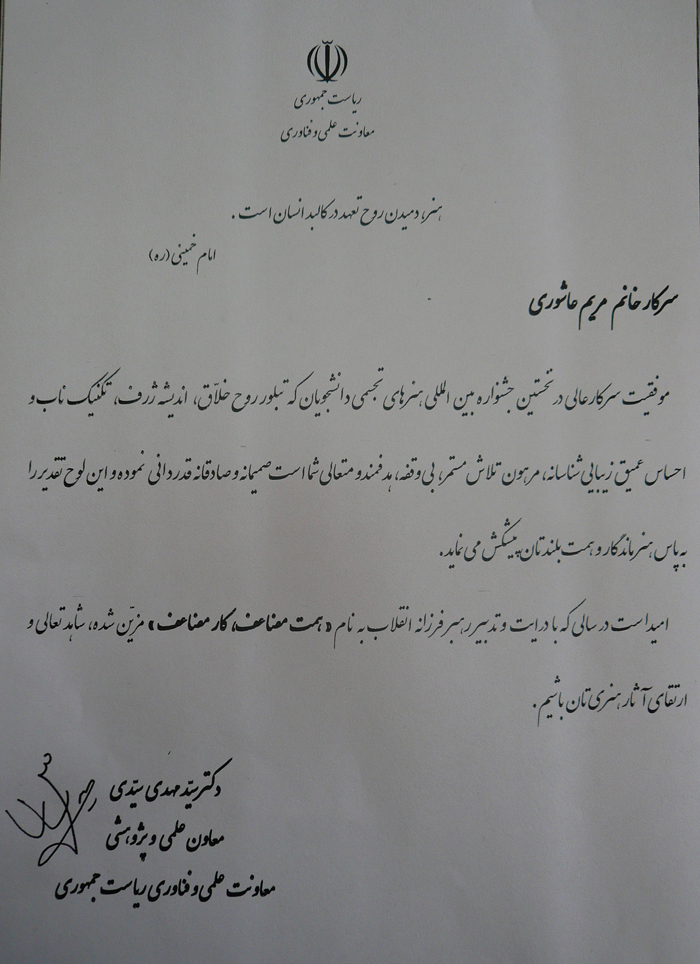 ریاست جمهوری
معاونت علمی و فناوری
هنر، دمیدن روح تعهد در کالبد انسان است.
امام خمینی (ره)
سرکار خانم مریم عاشوری
موفقیت سرکارعالی در نخستین جشنواره بین المللی هنرهای تجسمی دانشجویان که تبلور روح خلاّق، اندیشه ژرف، تکنیک ناب و
احساس عمیق زیبایی شناسانه، مرهون تلاش مستمر، بی وقفه، هدفمند و متعالی شما است صمیمانه و صادقانه قدردانی نموده و این لوح تقدیر را
به پاس هنر ماندگار و همت بلندتان پیشکش می نماید.
امید است در سالی که با درایت و تدبیر رهبر فرزانه انقلاب به نام «همت مضاعف، کار مضاعف» مزیّن شده، شاهد تعالی و
ارتقای آثار هنری تان باشیم.
دکتر سیّد مهدی سیّدی
معاون علمی و پژوهشی
معاونت علمی و فناوری ریاست جمهوری